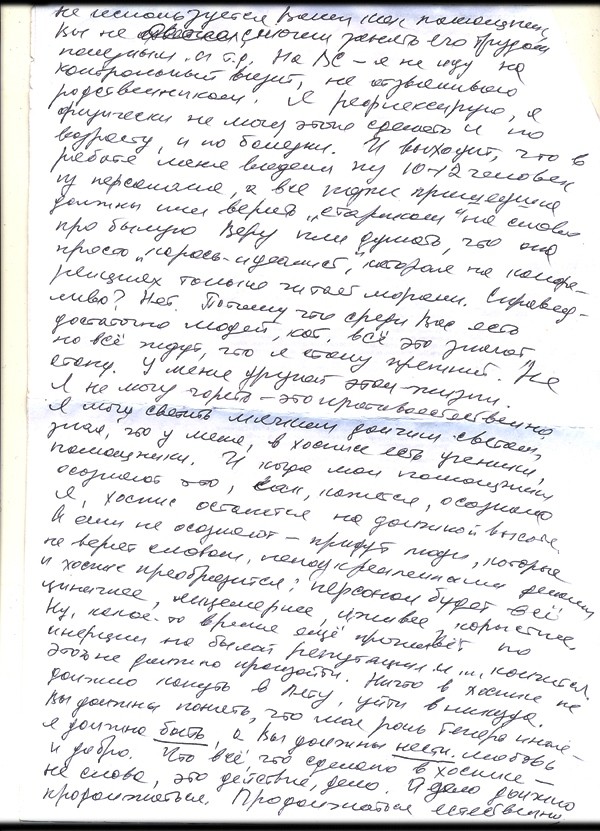 не используется Вами как помощник,
Вы не смогли занять его трудом
полезным и т.д. На ВС – я не иду на
контрольный визит, не отзваниваю
родственникам. Я рефлексирую, я
физически не могу этого сделать и по
возрасту, и по болезни. И выходит, что в
работе меня видели ну 10–12 человек
из персонала, а все позже пришедшие
должны или верить „старикам“ на слово
про былую Веру или думать, что она
просто „карась-идеалист“, которая на конфе-
ренциях только читает морали. Справед-
ливо? Нет. Потому что среди Вас есть
достаточно людей, кот. всё это знают
но всё ждут, что я стану прежней. Не
стану. У меня другой этап жизни.
Я не могу гореть – это противоестественно.
Я могу светить мягким долгим светом,
зная, что у меня, в хосписе есть ученики,
помощники. И когда мои помощники
осознают это, как, кажется, осознала
я, хоспис останется на должной высоте.
А если не осознают – придут люди, которые
не верят словам, неподкрепленным делами
и хоспис преобразится: персонал будет всё
циничнее, лицемернее, лживее, корыстнее.
Ну, какое-то время ещё проживёт по
инерции на былой репутации и ... кончится.
Этого не должно произойти. Ничто в хосписе не
должно кануть в Лету, уйти в никуда.
Вы должны понять, что моя роль теперь иная –
я должна быть, а Вы должны нести любовь
и добро. Что всё, что сделано в хосписе –
не слова, это действие, дело. И дело должно
продолжаться. Продолжаться естественно,